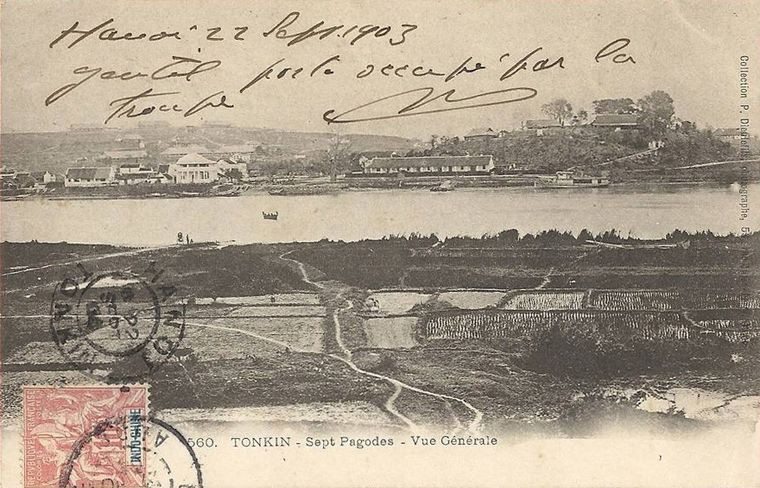 Hanoi 22 Sept. 1903
gentil poste occupé par la
troupe
Collection P. Dieulefils, Photographe, 53
HANOI
TONKIN
22
SEPT
RÉPUBLIQUE
INDO-CHINE
560. TONKIN - Sept Pagodes - Vue Générale